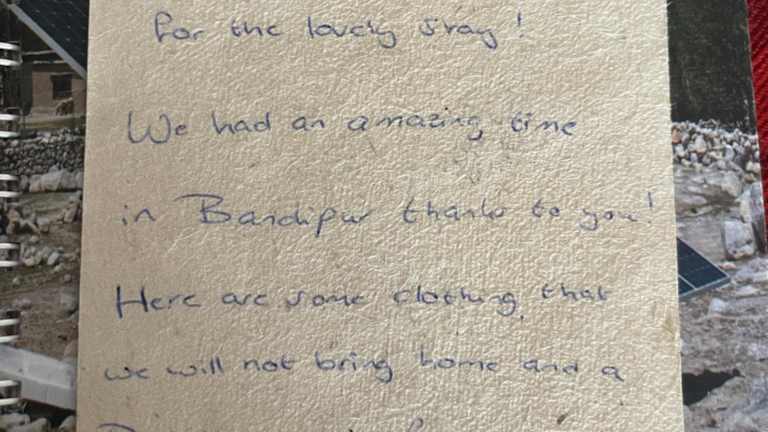 for the lovely stay!
We had an amazing time
in Bandipur thanks to you!
Here are some clothing, that
we will not bring home and a